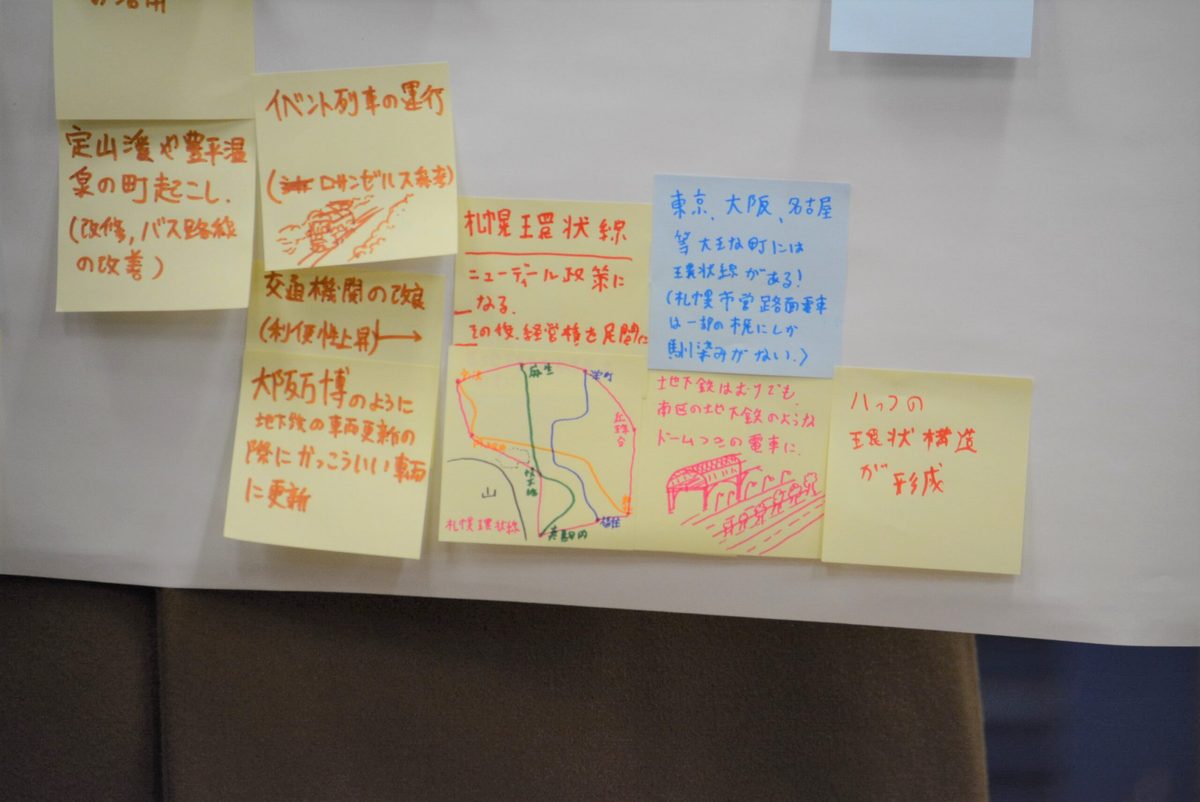 の活用
定山渓や豊平温
泉の町起こし.
(改修,バス路線
の改善)
イベント列車の運行
(ロサンゼルス参考)
交通機関の改良
(利便性上昇)→
大阪万博のように
地下鉄の車両更新の
際にかっこういい車両
に更新
札幌環状線
ニューディール政策に
なる.
その後、経営権を民間に
麻生
栄町
丘珠台
山
札幌環状線
真駒内
福住
東京、大阪、名古屋
等大きな町には
環状線がある!
(札幌市営路面電車
は一部の民にしか
馴染みがない.)
地下鉄はむりでも、
南区の地下鉄のような
ドームつきの電車に.
ハつの
環状構造
が形成